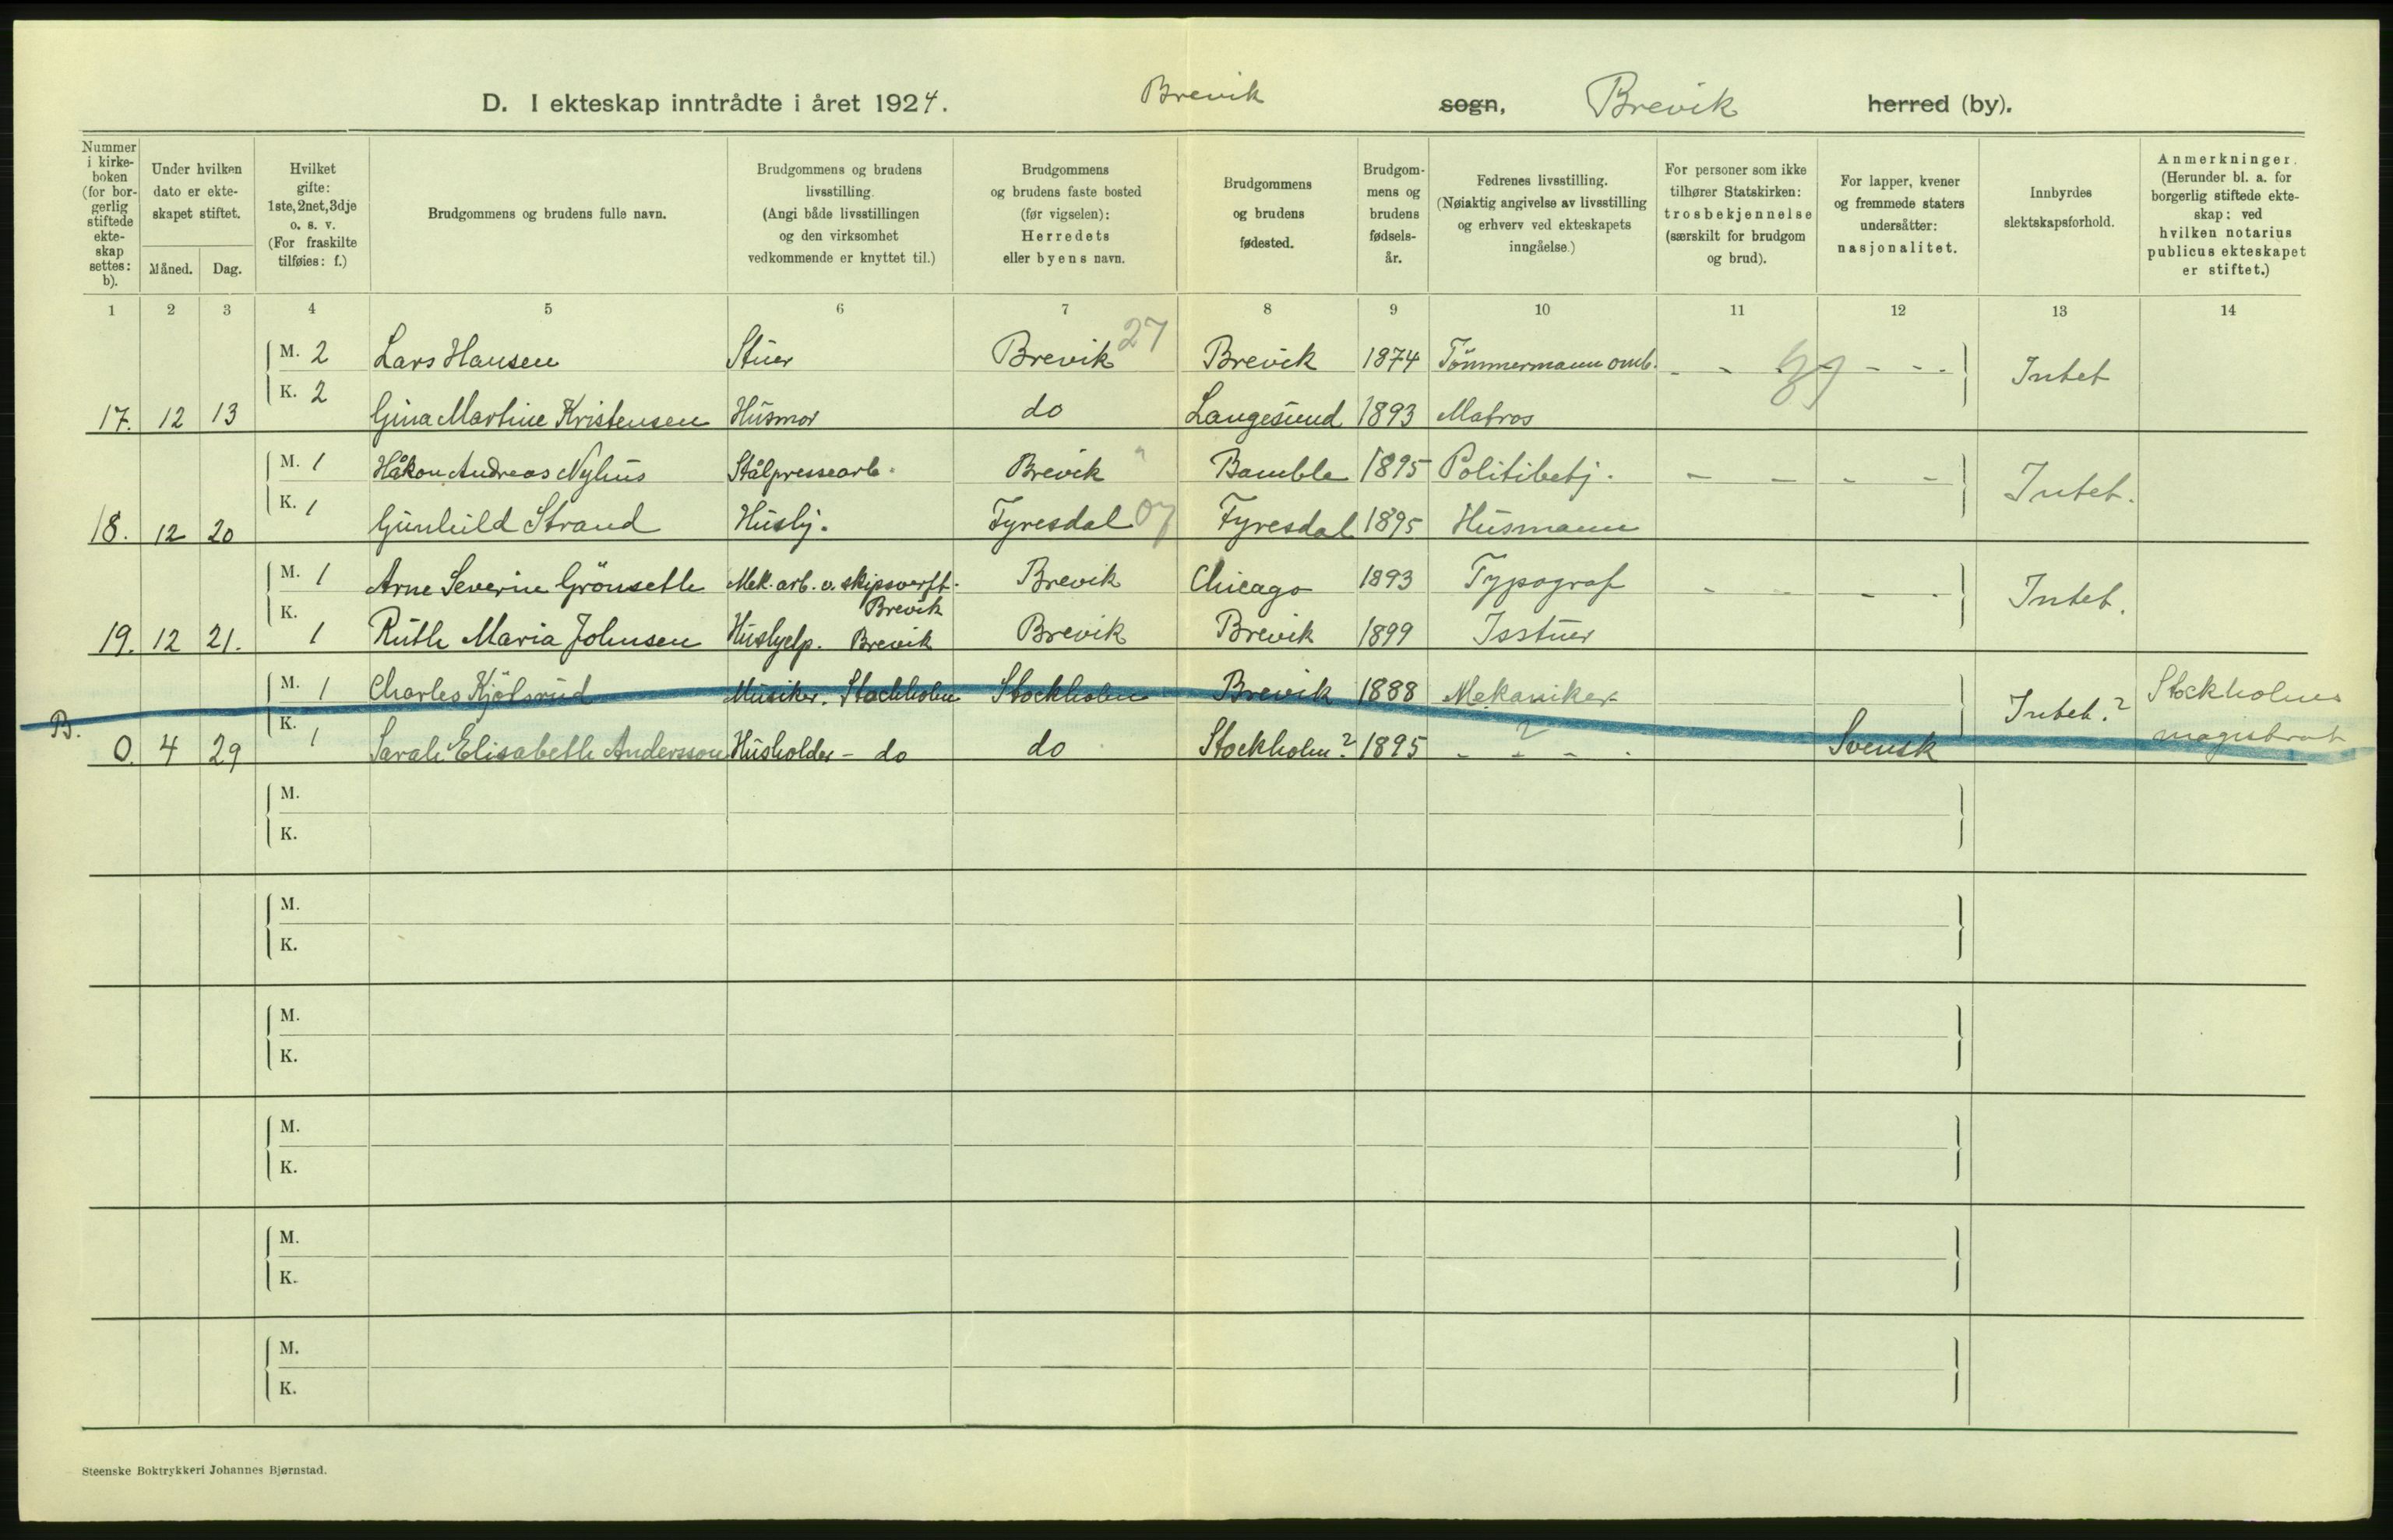 D. I ekteskap inntrådte i året 1924. Brevik sogn, Brevik herred (by).
Nummer i kirkeboken (for borgerlig stiftede ekteskap settes: b).
Under hvilken dato er ekteskapet stiftet.
Måned. Dag.
Hvilket gifte: 1ste, 2net, 3dje o. s. v. (For fraskilte tilføies: f.)
Brudgommens og brudens fulle navn.
Brudgommens og brudens livsstilling. (Angi både livsstillingen og den virksomhet vedkommende er knyttet til.)
Brudgommens og brudens faste bosted (før vigselen): Herredets eller byens navn.
Brudgommens og brudens fødested.
Brudgommens og brudens fødselsår.
Fedrenes livsstilling. (Nøiaktig angivelse av livsstilling og erhverv ved ekteskapets inngåelse.)
For personer som ikke tilhører Statskirken: trosbekjennelse (særskilt for brudgom og brud).
For lapper, kvener og fremmede staters undersåtter: nasjonalitet.
Innbyrdes slektskapsforhold.
Anmerkninger. (Herunder bl. a. for borgerlig stiftede ekteskap: ved hvilken notarius publicus ekteskapet er stiftet.)
1 2 3 4 5 6 7 8 9 10 11 12 13 14
M. 2 Lars Hansen Stuer Brevik 27 Brevik 1874 Tömmermann omb. - - - - - - Intet
17. 12 13 K. 2 Gina Martine Kristensen Husmor do Langesund 1893 Matros
M. 1 Håkon Andreas Nyhus Stålpressearb. Brevik " Bamble 1895 Politibetj. - - - - Intet.
18. 12 20 K. 1 Gunhild Strand Husbj. Fyresdal 07 Fyresdal 1895 Husmann
M. 1 Arne Severin Grönseth Mek. arb. v. skipsverft. Brevik Brevik Chicago 1893 Typograf - - - - Intet.
19. 12 21. K. 1 Ruth Maria Johnsen Hushjelp. Brevik Brevik Brevik 1899 Isstuer
M. 1 Charles Kjölsrud Musiker. Stockholm Stockholm Brevik 1888 Mekaniker Intet.? Stockholms magistrat
B. 0. 4 29 K. 1 Sarah Elisabeth Andersson Husholder - do do Stockholm? 1895 - ? - - Svensk
M.
K.
M.
K.
M.
K.
M.
K.
M.
K.
M.
K.
Steenske Boktrykkeri Johannes Bjørnstad.